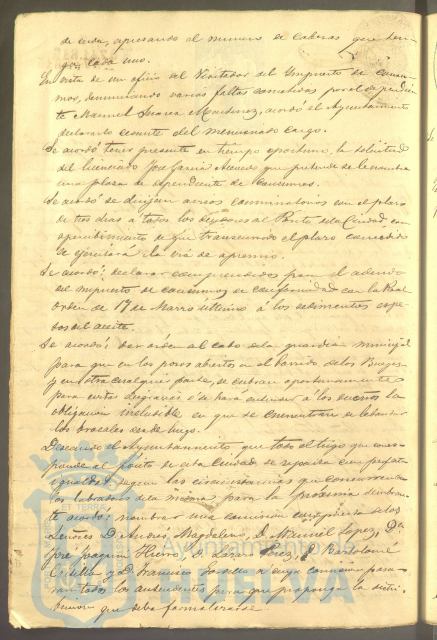 de cerda, apresando el numero de cabezas que ten-
ga cada uno.
En vista de un oficio del Visitador del Impuesto de Consu-
mos, denunciando varias faltas cometidas por el dependien-
te Manuel Martinez, acordó el Ayuntamiento
declararlo cesante del mencionado cargo.
Se acordó tener presente en tiempo oportuno, la solicitud
del licenciado José Garcia que pretende se le nombre
una plaza de dependiente de Consumos.
Se acordó se dirijan avisos conminatorios con el plazo
de tres dias á todos los deudores al Posito de la Ciudad, con
apercibimiento de que transcurrido el plazo concedido
se ejercitara la via de apremio.
Se acordó: declarar comprendidos para el adeudo
del impuesto de consumos de conformidad con la Real
orden de 17 de Marzo último á los sedimentos ó
del aceite.
Se acordó: dar orden al Cabo de la guardia municipal
para que en los pozos abiertos en el barrido de los
y en otra cualquier parte, se cubran oportunamente
para evitar desgracias é se haga entender á los dueños la
obligacion ineludible en que se encuentran de levantar
los brocales desde luego.
Deseando el Ayuntamiento que todo el trigo que corres-
ponde al posito de esta Ciudad se reparta con perfecta
igualdad segun las circunstancias que concurran en
los labradores de la misma para la proxima sementera
se acordó: nombrar una comision compuesta de los
Señores D. Andrés Magdaleno, D. Manuel Lopez, D.
José Joaquin Hierro, D. Perez, D. Bartolomé
y D. Francisco á cuya comision pasa-
ran todos los antecedentes para que proponga la distri-
bucion que deba formalizarse.
ET TERRAE
Ayuntamiento de
HUELVA